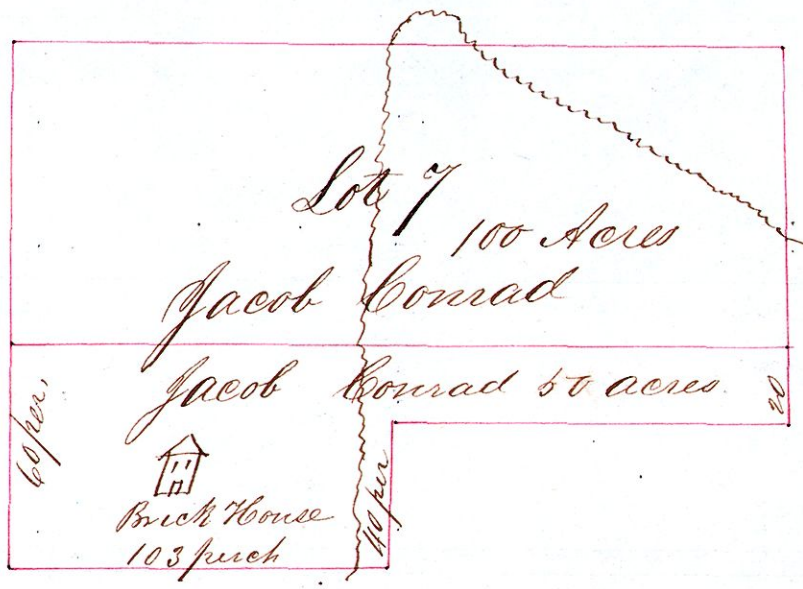 Lot 7
100 Acres
Jacob Conrad
Jacob Conrad 50 acres
20
60 per.
40 per
Brick House
103 perch